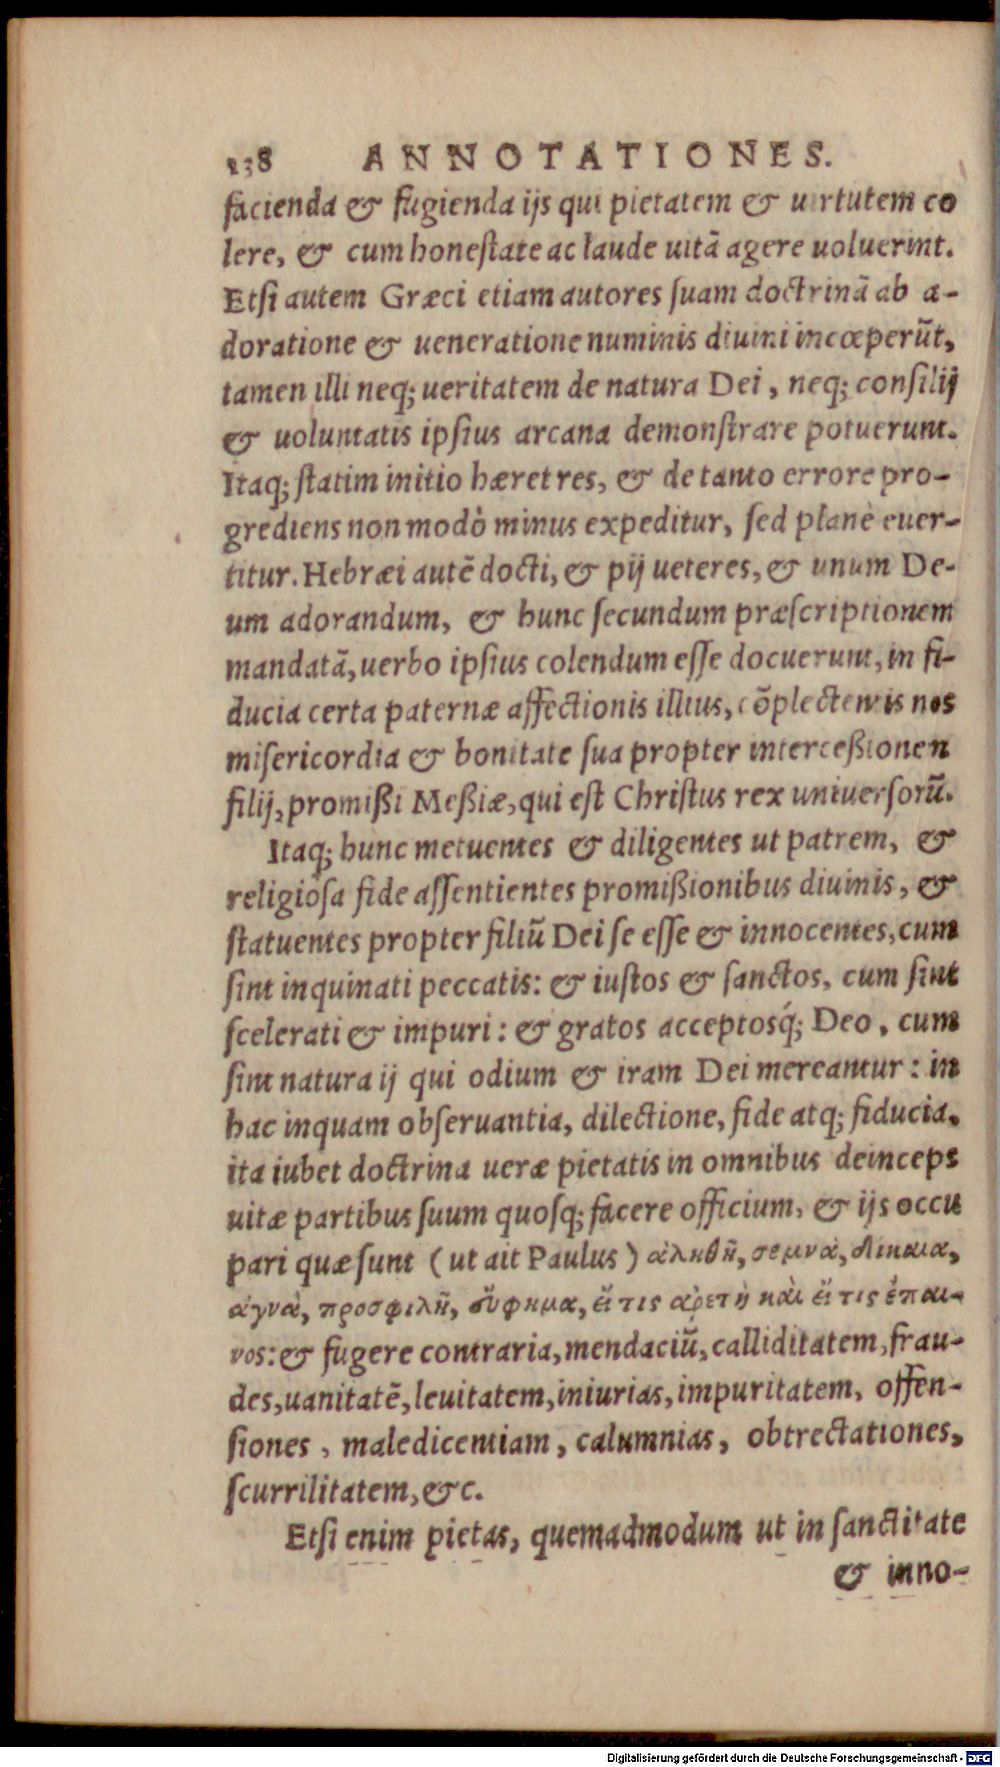 138 ANNOTATIONES.
facienda & fugienda ijs qui pietatem & uirtutem co
lere, & cum honeſtate ac laude uitã agere uoluerint.
Etſi autem Græci etiam autores ſuam doctrinã ab a-
doratione & ueneratione numinis diuini incœperũt,
tamen illi neq; ueritatem de natura Dei, neq; conſilij
& uoluntatis ipſius arcana demonſtrare potuerunt.
Itaq; ſtatim initio hæret res, & de tanto errore pro-
grediens non modò minus expeditur, ſed planè euer-
titur. Hebræi autẽ docti, & pij ueteres, & unum De-
um adorandum, & hunc ſecundum præſcriptionem
mandatã, uerbo ipſius colendum eſſe docuerunt, in fi-
ducia certa paternæ affectionis illius, cõplectentis nos
miſericordia & bonitate ſua propter interceßionen
filij, promißi Meßiæ, qui eſt Chriſtus rex uniuerſorũ.
Itaq; hunc metuentes & diligentes ut patrem, &
religioſa fide aſſentientes promißionibus diuinis, &
ſtatuentes propter filiũ Dei ſe eſſe & innocentes, cum
ſint inquinati peccatis: & iuſtos & ſanctos, cum ſint
ſcelerati & impuri: & gratos acceptosq́; Deo, cum
ſint natura ij qui odium & iram Dei mereantur: in
hac inquam obſeruantia, dilectione, fide atq; fiducia,
ita iubet doctrina ueræ pietatis in omnibus deinceps
uitæ partibus ſuum quoſq; facere officium, & ijs occu
pari quæ ſunt (ut ait Paulus) ἀληθῆ, σεμνὰ, δίκαια,
ἁγνὰ, προσφιλῆ, εὔφημα, εἴ τις ἀρετὴ καὶ εἴ τις ἔπαι-
νος: & fugere contraria, mendaciũ, calliditatem, frau-
des, uanitatẽ, leuitatem, iniurias, impuritatem, offen-
ſiones, maledicentiam, calumnias, obtrectationes,
ſcurrilitatem, &c.
Etſi enim pietas, quemadmodum ut in ſanctitate
& inno-
Digitalisierung gefördert durch die Deutsche Forschungsgemeinschaft - DFG